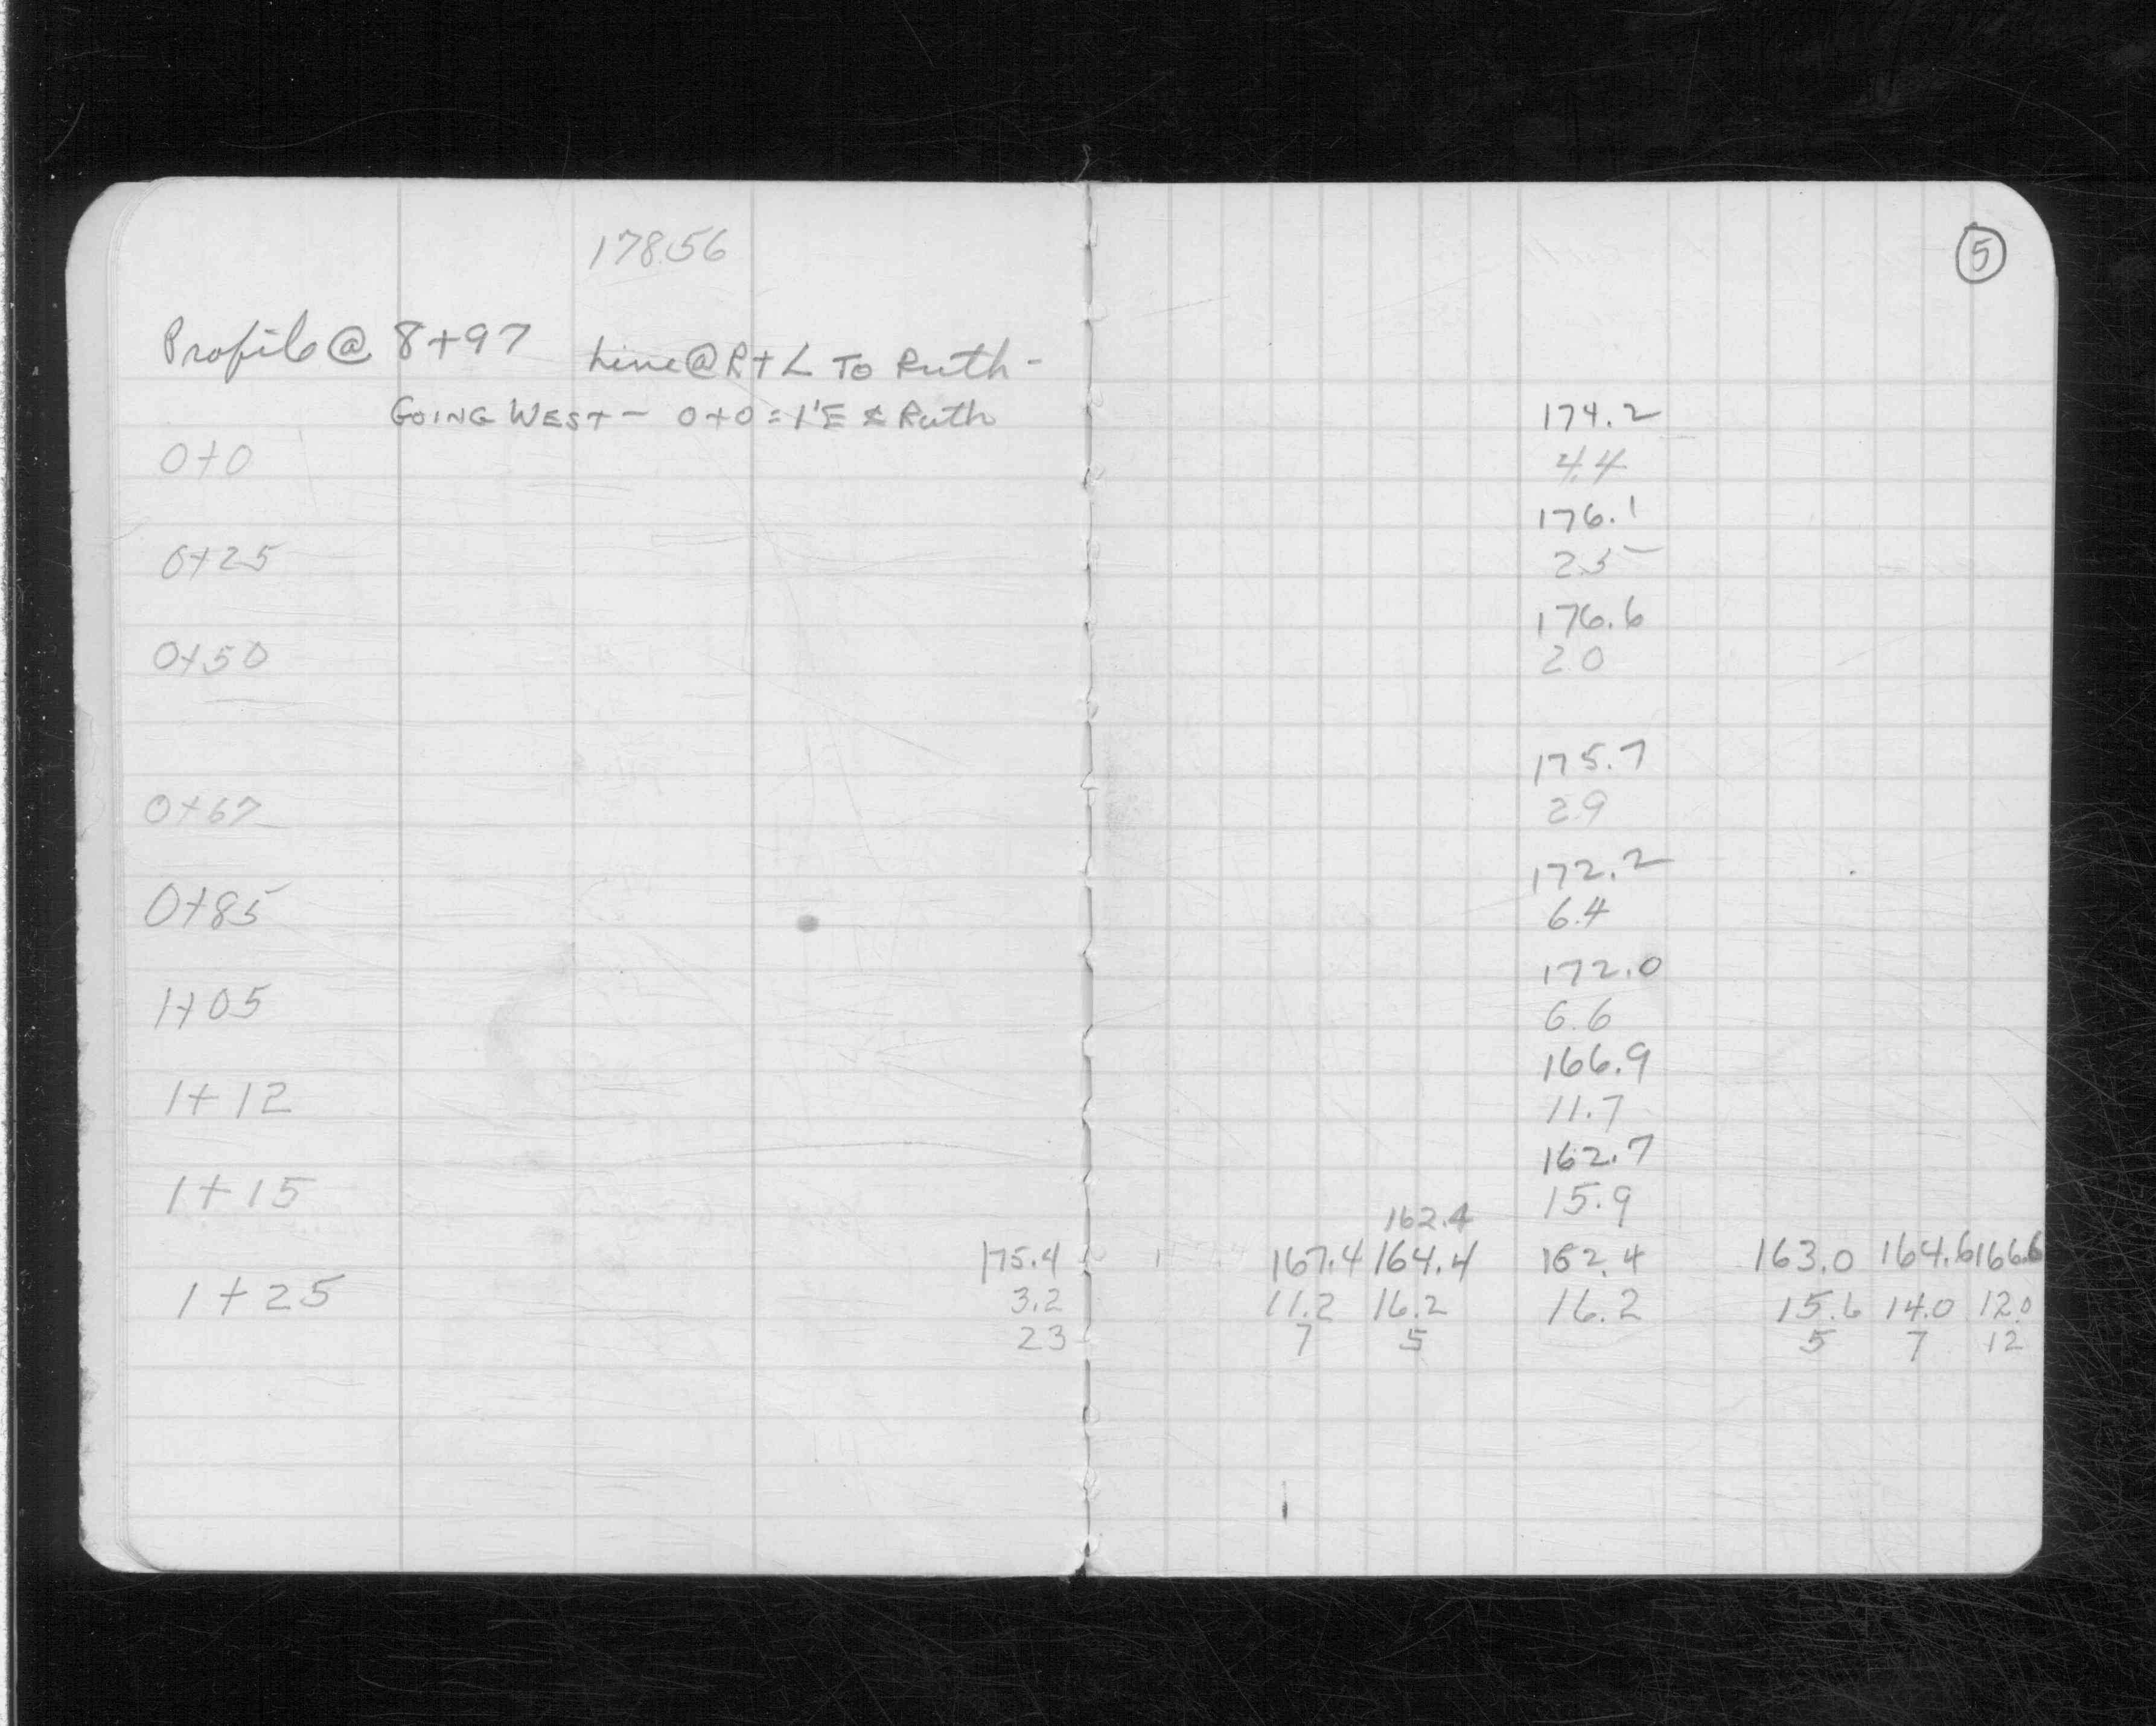 178.56
5
Profile @ 8+97 Line @ Rt L To Ruth -
GOING WEST - 0+0 = 1'E ℄ Ruth
174.2
0+0 4.4
176.1
0+25 2.5
176.6
0+50 2.0
175.7
0+67 2.9
172.2
0+85 6.4
172.0
1+05 6.6
166.9
1+12 11.7
162.7
1+15 15.9
162.4
175.4 167.4 164.4 162.4 163.0 164.6 166.6
1+25 3.2 11.2 16.2 16.2 15.6 14.0 12.0
23 7 5 5 7 12